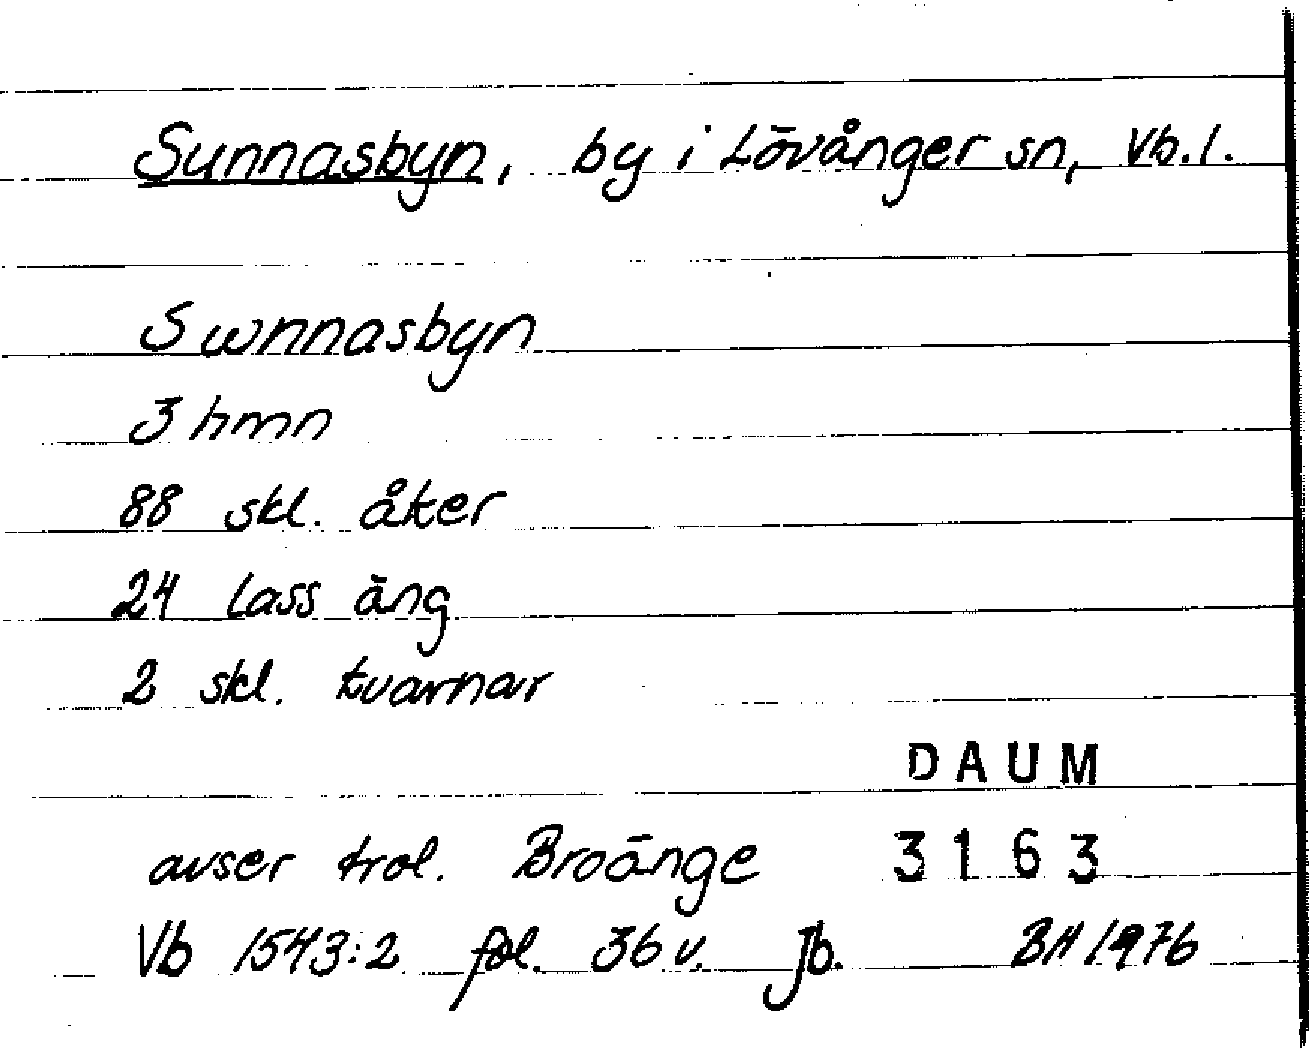 Sunnasbyn, by i Lövånger sn, Vb. l.
Swnnasbyn
3 hmn
88 skl. åker
24 lass äng
2 skl. kvarnar
DAUM
avser trol. Broänge 3163
Vb 1543:2 fol. 36 v. Jb. BH 1976